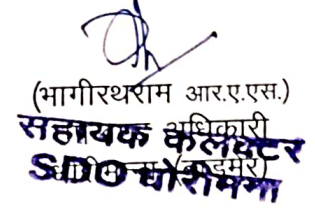 (भागीरथराम आर.ए.एस.)
सहायक कलेक्टर
अधिकारी
SDO धोरीमन्ना
(बाड़मेर)